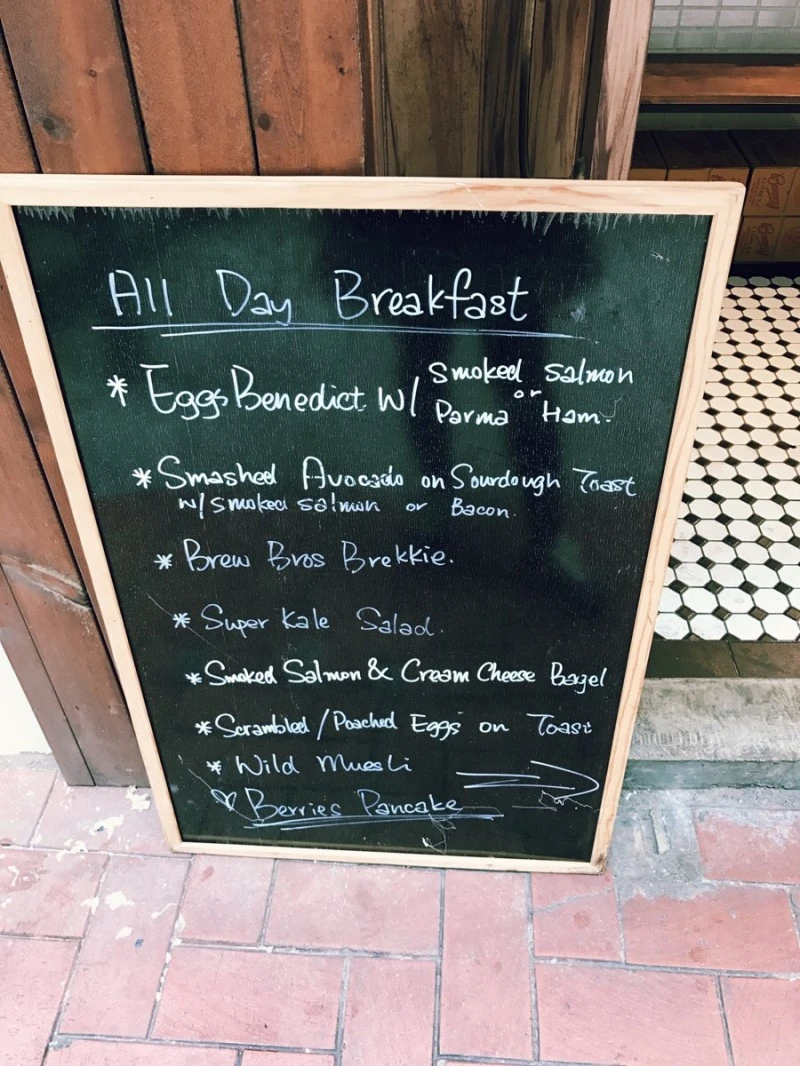 All Day Breakfast
* Eggs Benedict w/ smoked salmon or Parma Ham.
* Smashed Avocado on Sourdough Toast
w/ smoked salmon or Bacon.
* Brew Bros Brekkie.
* Super Kale Salad.
* Smoked Salmon & Cream Cheese Bagel
* Scrambled / Poached Eggs on Toast
* Wild Muesli
♡ Berries Pancake